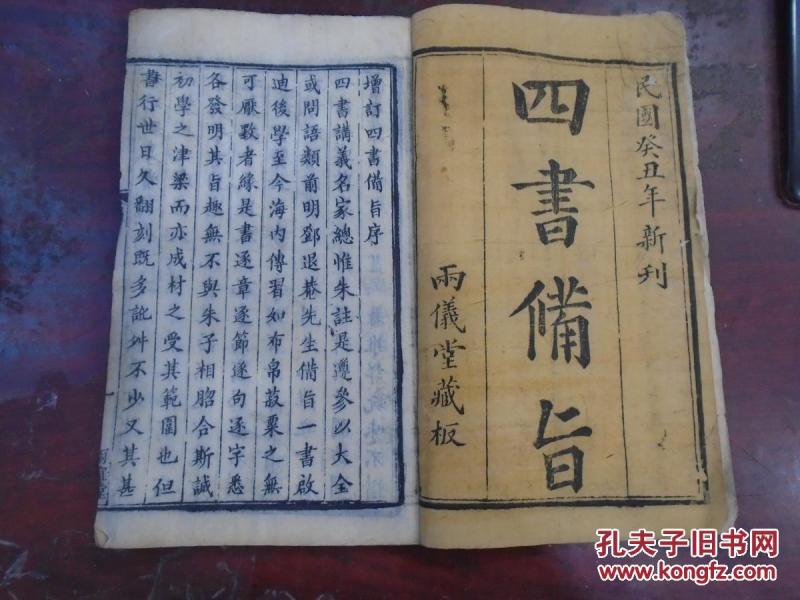 民國癸丑年新刋
四書備旨
兩儀堂藏板
增訂四書備旨序
四書講義名家總惟朱註是遵參以大全
或問語類前明鄧退菴先生備旨一書啟
迪後學至今海内傳習如布帛菽粟之無
可厭斁者緣是書逐章逐節逐句逐字悉
各發明其旨趣無不與朱子相脗合斯誠
初學之津梁而亦成材之受其範圍也但
書行世日久翻刻既多訛舛不少又其甚
孔夫子旧书网
www.kongfz.com